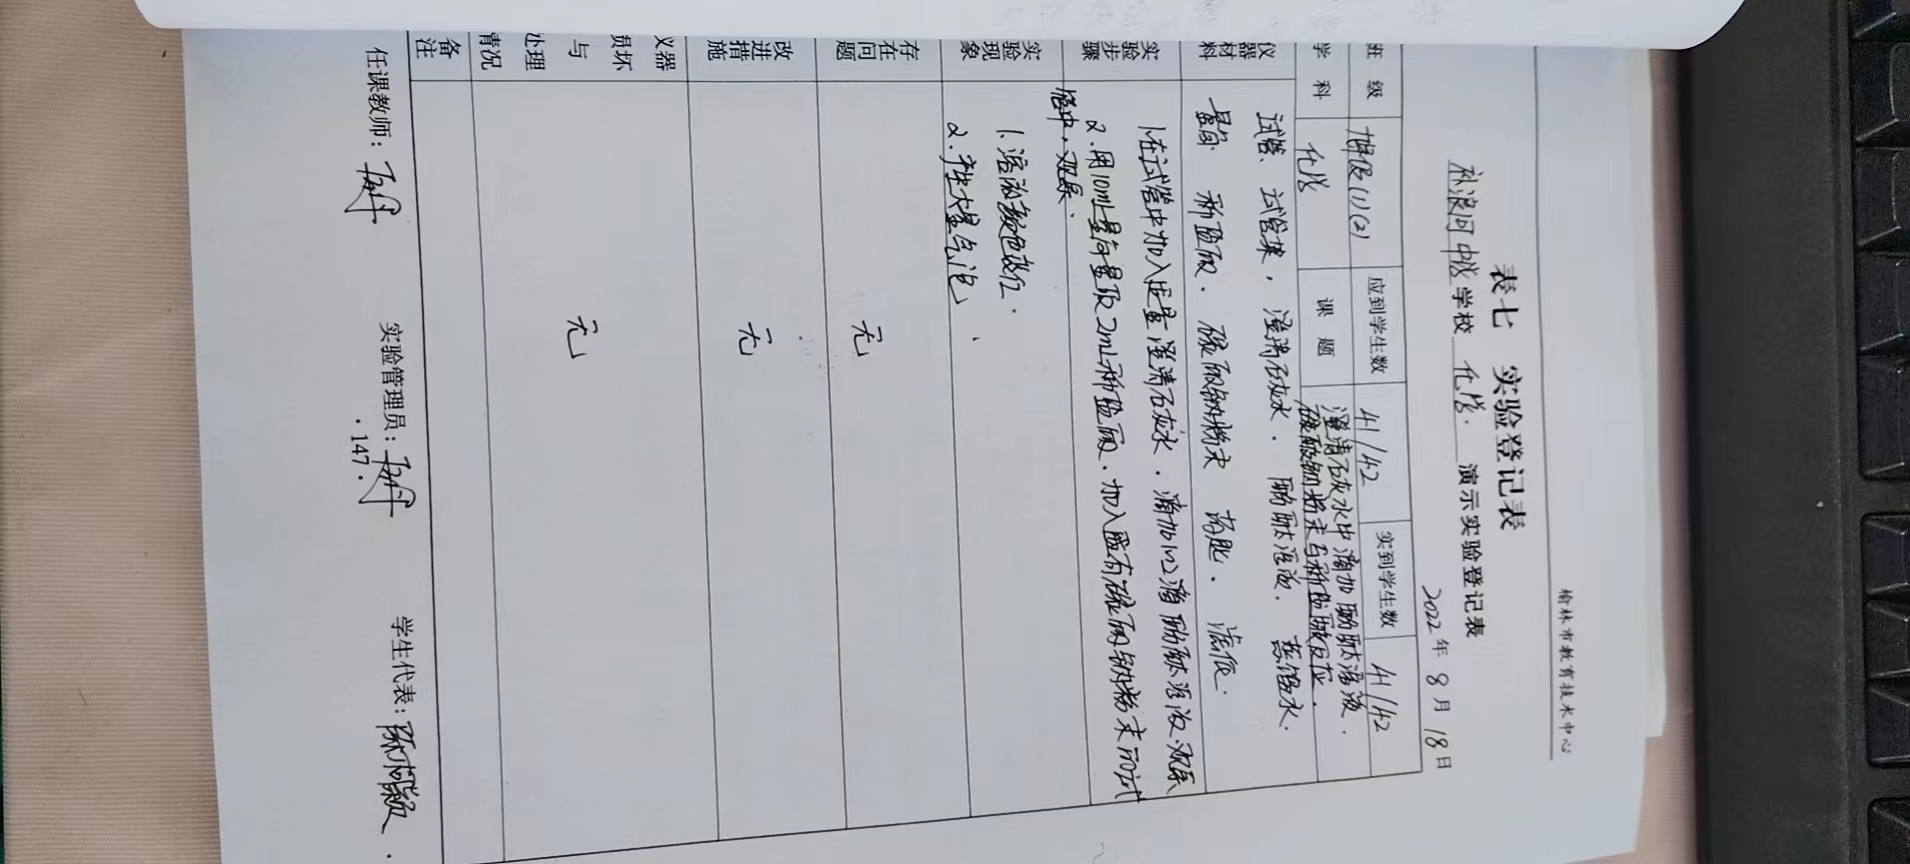 榆林市教育技术中心
表七 实验登记表
补浪河中学学校 化学 演示实验登记表
2022年8月18日
班级 九年级(1)(2) 应到学生数 41/42 实到学生数 41/42
学科 化学 课题 澄清石灰水中滴加酚酞溶液.
碳酸钠粉末与稀盐酸反应.
仪器材料 试管、试管架,澄清石灰水.酚酞溶液.蒸馏水.
量筒.稀盐酸.碳酸钠粉末 药匙.滤纸.
实验步骤 1.在试管中加入适量澄清石灰水.滴加1~2滴酚酞溶液.观察
2.用10mL量筒量取2mL稀盐酸.加入盛有碳酸钠粉末的试
管中,观察.
实验现象 1.溶液颜色变红.
2.产生大量气泡
存在问题 无
改进措施 无
仪器损坏与处理情况 无
备注
任课教师: 实验管理员: 学生代表:
·147·